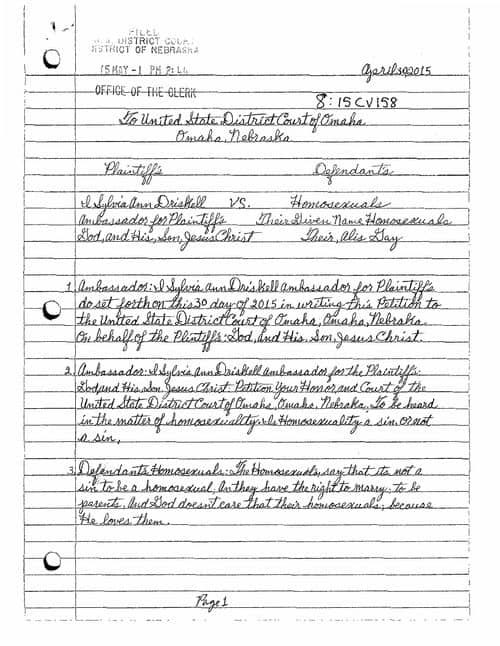 FILED
U.S. DISTRICT COURT
DISTRICT OF NEBRASKA
15 MAY -1 PM 2:44
April 30 2015
OFFICE OF THE CLERK
8:15CV158
To United State District Court of Omaha
Omaha, Nebraska
Plaintiffs Defendants
I Sylvia Ann Driskell VS. Homosexuals
Ambassador for Plaintiffs Their Given Name Homosexuals
God, and His, Son, Jesus Christ Their, Alis Gay
1. Ambassador: I Sylvia Ann Driskell Ambassador for Plaintiffs
do set forth on this 30 day of 2015 in writing this Petition to
the United State District Court of Omaha, Omaha, Nebraka.
On behalf of the Plintiffs: God, And His, Son, Jesus Christ.
2. Ambassador: I Sylvia Ann Driskell ambassador for the Plaintiffs:
God, and His, Son, Jesus Christ. Petition Your Honor, and Court of the
United State District Court of Omaha, Omaha, Nebraka, To be heard
in the matter of homosexuality. Is Homosexuality a sin, or not
a sin,
3. Defendants Homosexuals: The Homosexuals, say that its not a
sin to be a homosexual, An they have the right to marry: to be
parents, And God doesnt care that their homosexuals; because
He loves them.
Page 1